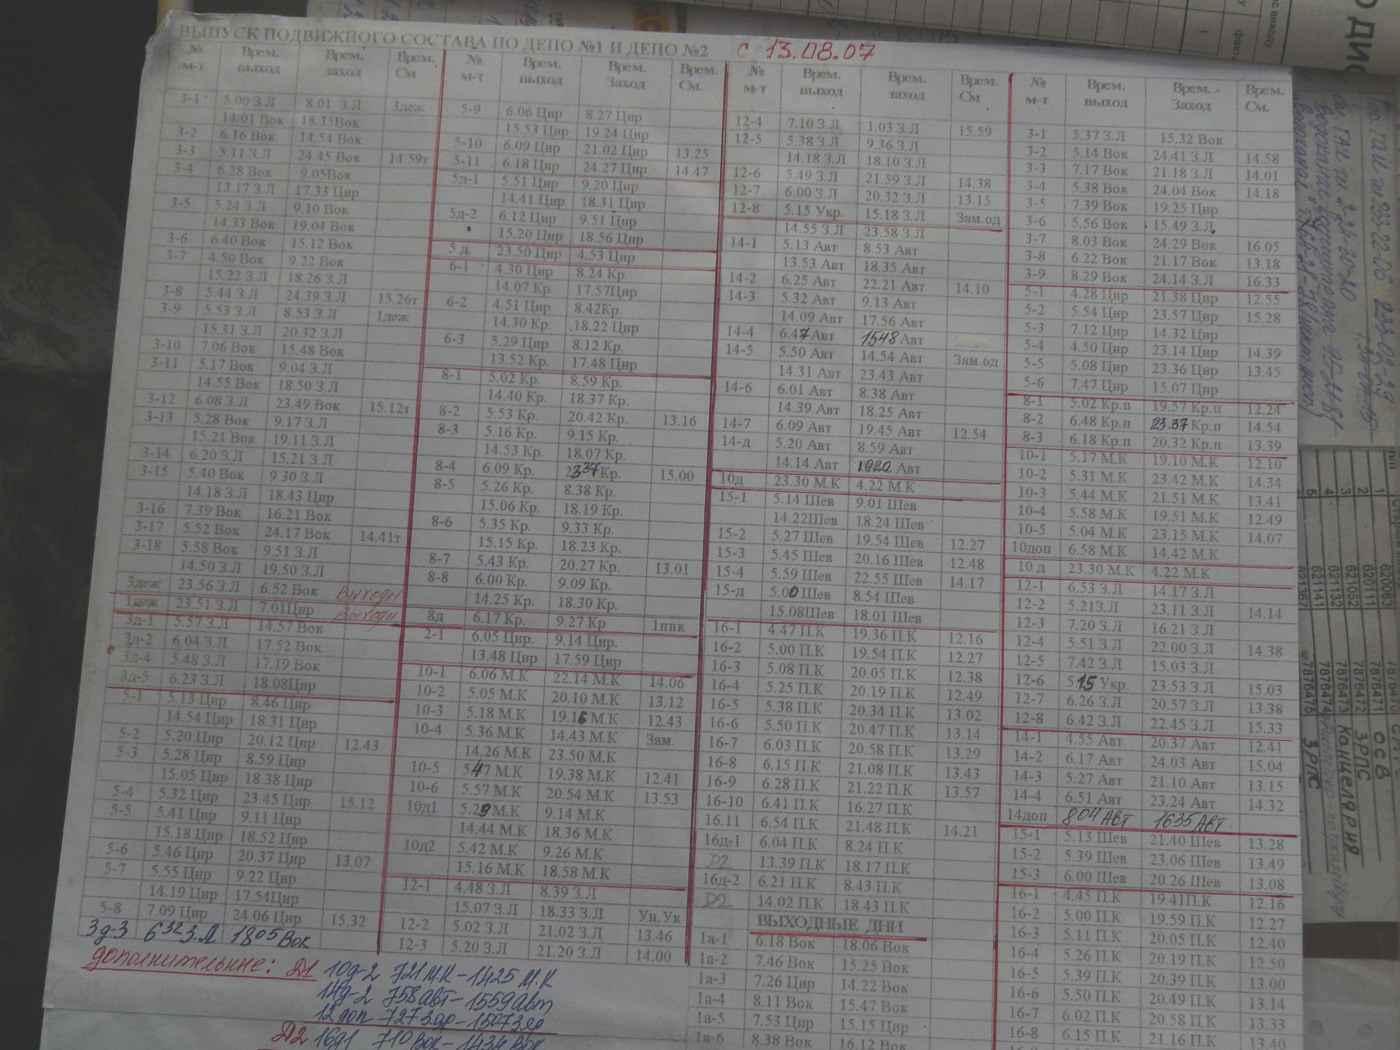 ВЫПУСК ПОДВИЖНОГО СОСТАВА ПО ДЕПО №1 И ДЕПО №2 с 13.08.07
№ м-т Врем. выход Врем. заход Врем. См
3-1 5.00 З.Л 8.01 З.Л 3деж
14.01 Вок 18.35Вок
3-2 6.16 Вок 14.54 Вок
3-3 5.11 З.Л 24.45 Вок 14.59т
3-4 6.28 Вок 9.05Вок
13.17 З.Л 17.33 Цир
3-5 5.24 З.Л 9.10 Вок
14.33 Вок 19.04 Вок
3-6 6.40 Вок 15.12 Вок
3-7 4.50 Вок 9.22 Вок
15.22 З.Л 18.26 З.Л
3-8 5.44 З.Л 24.39 З.Л 15.26т
3-9 5.53 З.Л 8.53 З.Л 1деж
15.31 З.Л 20.32 З.Л
3-10 7.06 Вок 15.48 Вок
3-11 5.17 Вок 9.04 З.Л
14.55 Вок 18.50 З.Л
3-12 6.08 З.Л 23.49 Вок 15.12т
3-13 5.28 Вок 9.17 З.Л
15.21 Вок 19.11 З.Л
3-14 6.20 З.Л 15.21 З.Л
3-15 5.40 Вок 9.30 З.Л
14.18 З.Л 18.43 Цир
3-16 7.39 Вок 16.21 Вок
3-17 5.52 Вок 24.17 Вок 14.41т
3-18 5.58 Вок 9.51 З.Л
14.50 З.Л 19.50 З.Л
3деж 23.56 З.Л 6.52 Вок выходн
1деж 23.51 З.Л 7.01Цир выходн
3д-1 5.57 З.Л 14.57 Вок
3д-2 6.04 З.Л 17.52 Вок
3д-4 5.48 З.Л 17.19 Вок
3д-5 6.23 З.Л 18.08Цир
5-1 5.13 Цир 8.46 Цир
14.54 Цир 18.31 Цир
5-2 5.20 Цир 20.12 Цир 12.43
5-3 5.28 Цир 8.59 Цир
15.05 Цир 18.38 Цир
5-4 5.32 Цир 23.45 Цир 15.12
5-5 5.41 Цир 9.11 Цир
15.18 Цир 18.52 Цир
5-6 5.46 Цир 20.37 Цир 13.07
5-7 5.55 Цир 9.22 Цир
14.19 Цир 17.54Цир
5-8 7.09 Цир 24.06 Цир 15.32
3д-3 6 32 З.Л 18 05 Вок
дополнительные: Д1 10д-2 721 М.К - 1425 М.К
14д-2 758 авт - 1559 авт
12доп 727 - 1507
Д2 16д1 710 Вок - 1434 Вок
№ м-т Врем. выход Врем. Заход Врем. См.
5-9 6.06 Цир 8.27 Цир
15.53 Цир 19.24 Цир
5-10 6.09 Цир 21.02 Цир 13.25
5-11 6.18 Цир 24.27 Цир 14.47
5д-1 5.51 Цир 9.20 Цир
14.41 Цир 18.31 Цир
5д-2 6.12 Цир 9.51 Цир
15.20 Цир 18.56 Цир
5 д 23.50 Цир 4.53 Цир
6-1 4.30 Цир 8.24 Кр.
14.07 Кр. 17.57Цир
6-2 4.51 Цир 8.42Кр.
14.30 Кр. 18.22 Цир
6-3 5.29 Цир 8.12 Кр.
13.52 Кр. 17.48 Цир
8-1 5.02 Кр. 8.59 Кр.
14.40 Кр. 18.37 Кр.
8-2 5.53 Кр. 20.42 Кр. 13.16
8-3 5.16 Кр. 9.15 Кр.
14.53 Кр. 18.07 Кр.
8-4 6.09 Кр. 2337 Кр. 15.00
8-5 5.26 Кр. 8.38 Кр.
15.06 Кр. 18.19 Кр.
8-6 5.35 Кр. 9.33 Кр.
15.15 Кр. 18.23 Кр.
8-7 5.43 Кр. 20.27 Кр. 13.01
8-8 6.00 Кр. 9.09 Кр.
14.25 Кр. 18.30 Кр.
8д 6.17 Кр. 9.27 Кр 1пик
2-1 6.05 Цир. 9.14 Цир.
13.48 Цир 17.59 Цир
10-1 6.06 М.К 22.14 М.К 14.06
10-2 5.05 М.К 20.10 М.К 13.12
10-3 5.18 М.К 19.16 М.К 12.43
10-4 5.36 М.К 14.43 М.К Зам.
14.26 М.К 23.50 М.К
10-5 547 М.К 19.38 М.К 12.41
10-6 5.57 М.К 20.54 М.К 13.53
10д1 5.29 М.К 9.14 М.К
14.44 М.К 18.36 М.К
10д2 5.42 М.К 9.26 М.К
15.16 М.К 18.58 М.К
12-1 4.48 З.Л 8.39 З.Л
15.07 З.Л 18.33 З.Л Ун.Ук
12-2 5.02 З.Л 21.02 З.Л 13.46
12-3 5.20 З.Л 21.20 З.Л 14.00
№ м-т Врем. выход Врем. заход Врем. См
12-4 7.10 З.Л 1.03 З.Л 15.59
12-5 5.38 З.Л 9.36 З.Л
14.18 З.Л 18.10 З.Л
12-6 5.49 З.Л 21.59 З.Л 14.38
12-7 6.00 З.Л 20.32 З.Л 13.15
12-8 5.15 Укр. 15.18 З.Л Зам.од
14.55 З.Л 23.58 З.Л
14-1 5.13 Авт 8.53 Авт
13.53 Авт 18.35 Авт
14-2 6.25 Авт 22.21 Авт 14.10
14-3 5.32 Авт 9.13 Авт
14.09 Авт 17.56 Авт
14-4 6.47 Авт 1548 Авт
14-5 5.50 Авт 14.54 Авт Зам.од
14.31 Авт 23.43 Авт
14-6 6.01 Авт 8.38 Авт
14.39 Авт 18.25 Авт
14-7 6.09 Авт 19.45 Авт 12.54
14-д 5.20 Авт 8.59 Авт
14.14 Авт 1920 Авт
10д 23.30 М.К 4.22 М.К
15-1 5.14 Шев 9.01 Шев
14.22Шев 18.24 Шев
15-2 5.27 Шев 19.54 Шев 12.27
15-3 5.45 Шев 20.16 Шев 12.48
15-4 5.59 Шев 22.55 Шев 14.17
15-д 5.00 Шев 8.54 Шев
15.08Шев 18.01 Шев
16-1 4.47 П.К 19.36 П.К 12.16
16-2 5.00 П.К 19.54 П.К 12.27
16-3 5.08 П.К 20.05 П.К 12.38
16-4 5.25 П.К 20.19 П.К 12.49
16-5 5.38 П.К 20.34 П.К 13.02
16-6 5.50 П.К 20.47 П.К 13.14
16-7 6.03 П.К 20.58 П.К 13.29
16-8 6.15 П.К 21.08 П.К 13.43
16-9 6.28 П.К 21.22 П.К 13.57
16-10 6.41 П.К 16.27 П.К
16.11 6.54 П.К 21.48 П.К 14.21
16д-1 6.04 П.К 8.24 П.К
Д2 13.39 П.К 18.17 П.К
16д-2 6.21 П.К 8.43 П.К
Д2 14.02 П.К 18.43 П.К
ВЫХОДНЫЕ ДНИ
1а-1 6.18 Вок 18.06 Вок
1а-2 7.46 Вок 15.25 Вок
1а-3 7.26 Цир 14.22 Вок
1а-4 8.11 Вок 15.47 Вок
1а-5 7.53 Цир 15.15 Цир
1а-6 8.38 Вок 16.12 Вок
№ м-т Врем. выход Врем. Заход Врем. См.
3-1 5.37 З.Л 15.32 Вок
3-2 5.14 Вок 24.41 З.Л 14.58
3-3 7.17 Вок 21.18 З.Л 14.01
3-4 5.38 Вок 24.04 Вок 14.18
3-5 7.39 Вок 19.25 Цир
3-6 5.56 Вок 15.49 З.Л
3-7 8.03 Вок 24.29 Вок 16.05
3-8 6.22 Вок 21.17 Вок 13.18
3-9 8.29 Вок 24.14 З.Л 16.33
5-1 4.28 Цир 21.38 Цир 12.55
5-2 5.54 Цир 23.57 Цир 15.28
5-3 7.12 Цир 14.32 Цир
5-4 4.50 Цир 23.14 Цир 14.39
5-5 5.08 Цир 23.36 Цир 13.45
5-6 7.47 Цир 15.07 Цир
8-1 5.02 Кр.п 19.57 Кр.п 12.24
8-2 6.48 Кр.п 23.37 Кр.п 14.54
8-3 6.18 Кр.п 20.32 Кр.п 13.39
10-1 5.17 М.К 19.10 М.К 12.10
10-2 5.31 М.К 23.42 М.К 14.34
10-3 5.44 М.К 21.51 М.К 13.41
10-4 5.58 М.К 19.51 М.К 12.49
10-5 5.04 М.К 23.15 М.К 14.07
10доп 6.58 М.К 14.42 М.К
10 д 23.30 М.К 4.22 М.К
12-1 6.53 З.Л 14.17 З.Л
12-2 5.21З.Л 23.11 З.Л 14.14
12-3 7.20 З.Л 16.21 З.Л
12-4 5.51 З.Л 22.00 З.Л 14.38
12-5 7.42 З.Л 15.03 З.Л
12-6 515 Укр. 23.53 З.Л 15.03
12-7 6.26 З.Л 20.57 З.Л 13.38
12-8 6.42 З.Л 22.45 З.Л 15.33
14-1 4.55 Авт 20.37 Авт 12.41
14-2 6.17 Авт 24.03 Авт 15.04
14-3 5.27 Авт 21.10 Авт 13.15
14-4 6.51 Авт 23.24 Авт 14.32
14доп 804 Авт 1635 Авт.
15-1 5.13 Шев 21.40 Шев 13.28
15-2 5.39 Шев 23.06 Шев 13.49
15-3 6.00 Шев 20.26 Шев 13.08
16-1 4.45 П.К 19.41П.К 12.16
16-2 5.00 П.К 19.59 П.К 12.27
16-3 5.11 П.К 20.05 П.К 12.40
16-4 5.26 П.К 20.19 П.К 12.50
16-5 5.39 П.К 20.39 П.К 13.00
16-6 5.50 П.К 20.49 П.К 13.14
16-7 6.02 П.К 20.58 П.К 13.33
16-8 6.15 П.К 21.16 П.К 13.40